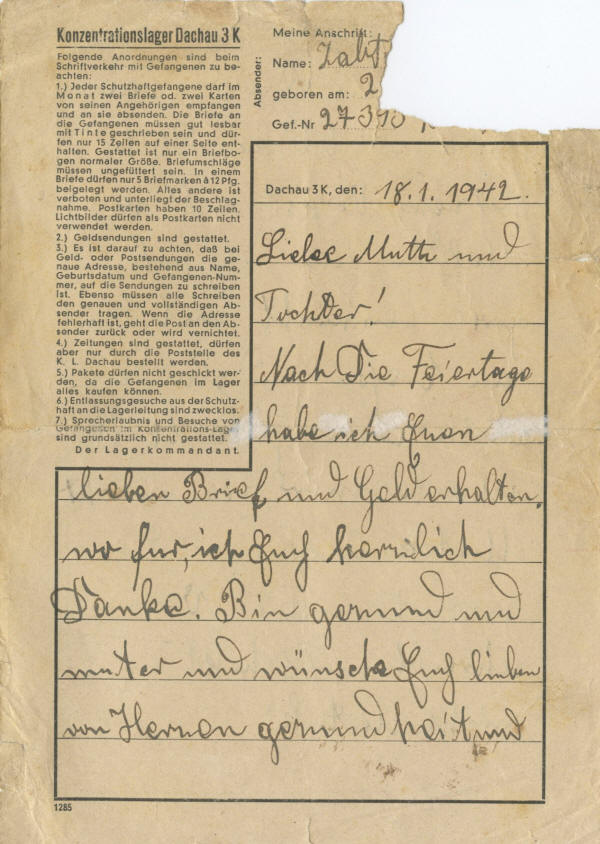 Konzentrationslager Dachau 3 K
Folgende Anordnungen sind beim
Schriftverkehr mit Gefangenen zu be-
achten:
1.) Jeder Schutzhaftgefangene darf im
Monat zwei Briefe od. zwei Karten
von seinen Angehörigen empfangen
und an sie absenden. Die Briefe an
die Gefangenen müssen gut lesbar
mit Tinte geschrieben sein und dür-
fen nur 15 Zeilen auf einer Seite ent-
halten. Gestattet ist nur ein Briefbo-
gen normaler Größe. Briefumschläge
müssen ungefüttert sein. In einem
Briefe dürfen nur 5 Briefmarken à 12 Pfg.
beigelegt werden. Alles andere ist
verboten und unterliegt der Beschlag-
nahme. Postkarten haben 10 Zeilen.
Lichtbilder dürfen als Postkarten nicht
verwendet werden.
2.) Geldsendungen sind gestattet.
3.) Es ist darauf zu achten, daß bei
Geld- oder Postsendungen die ge-
naue Adresse, bestehend aus Name,
Geburtsdatum und Gefangenen-Num-
mer, auf die Sendungen zu schreiben
ist. Ebenso müssen alle Schreiben
den genauen und vollständigen Ab-
sender tragen. Wenn die Adresse
fehlerhaft ist, geht die Post an den Ab-
sender zurück oder wird vernichtet.
4.) Zeitungen sind gestattet, dürfen
aber nur durch die Poststelle des
K. L. Dachau bestellt werden.
5.) Pakete dürfen nicht geschickt wer-
den, da die Gefangenen im Lager
alles kaufen können.
6.) Entlassungsgesuche aus der Schutz-
haft an die Lagerleitung sind zwecklos.
7.) Sprecherlaubnis und Besuche von
Gefangenen im Konzentrations-Lager
sind grundsätzlich nicht gestattet.
Der Lagerkommandant.
Absender:
Meine Anschrift:
Name:
geboren am: 2
Gef.-Nr
Dachau 3 K, den: 18.1.1942.
Liebe und
Tochter!
Nach Die Feiertage
habe ich Euren
lieben Brief und Geld erhalten.
wo für, ich Euch herzlich
Danke. Bin gesund und
munter und wünsche Euch lieben
von Herzen gesundheit und
1285